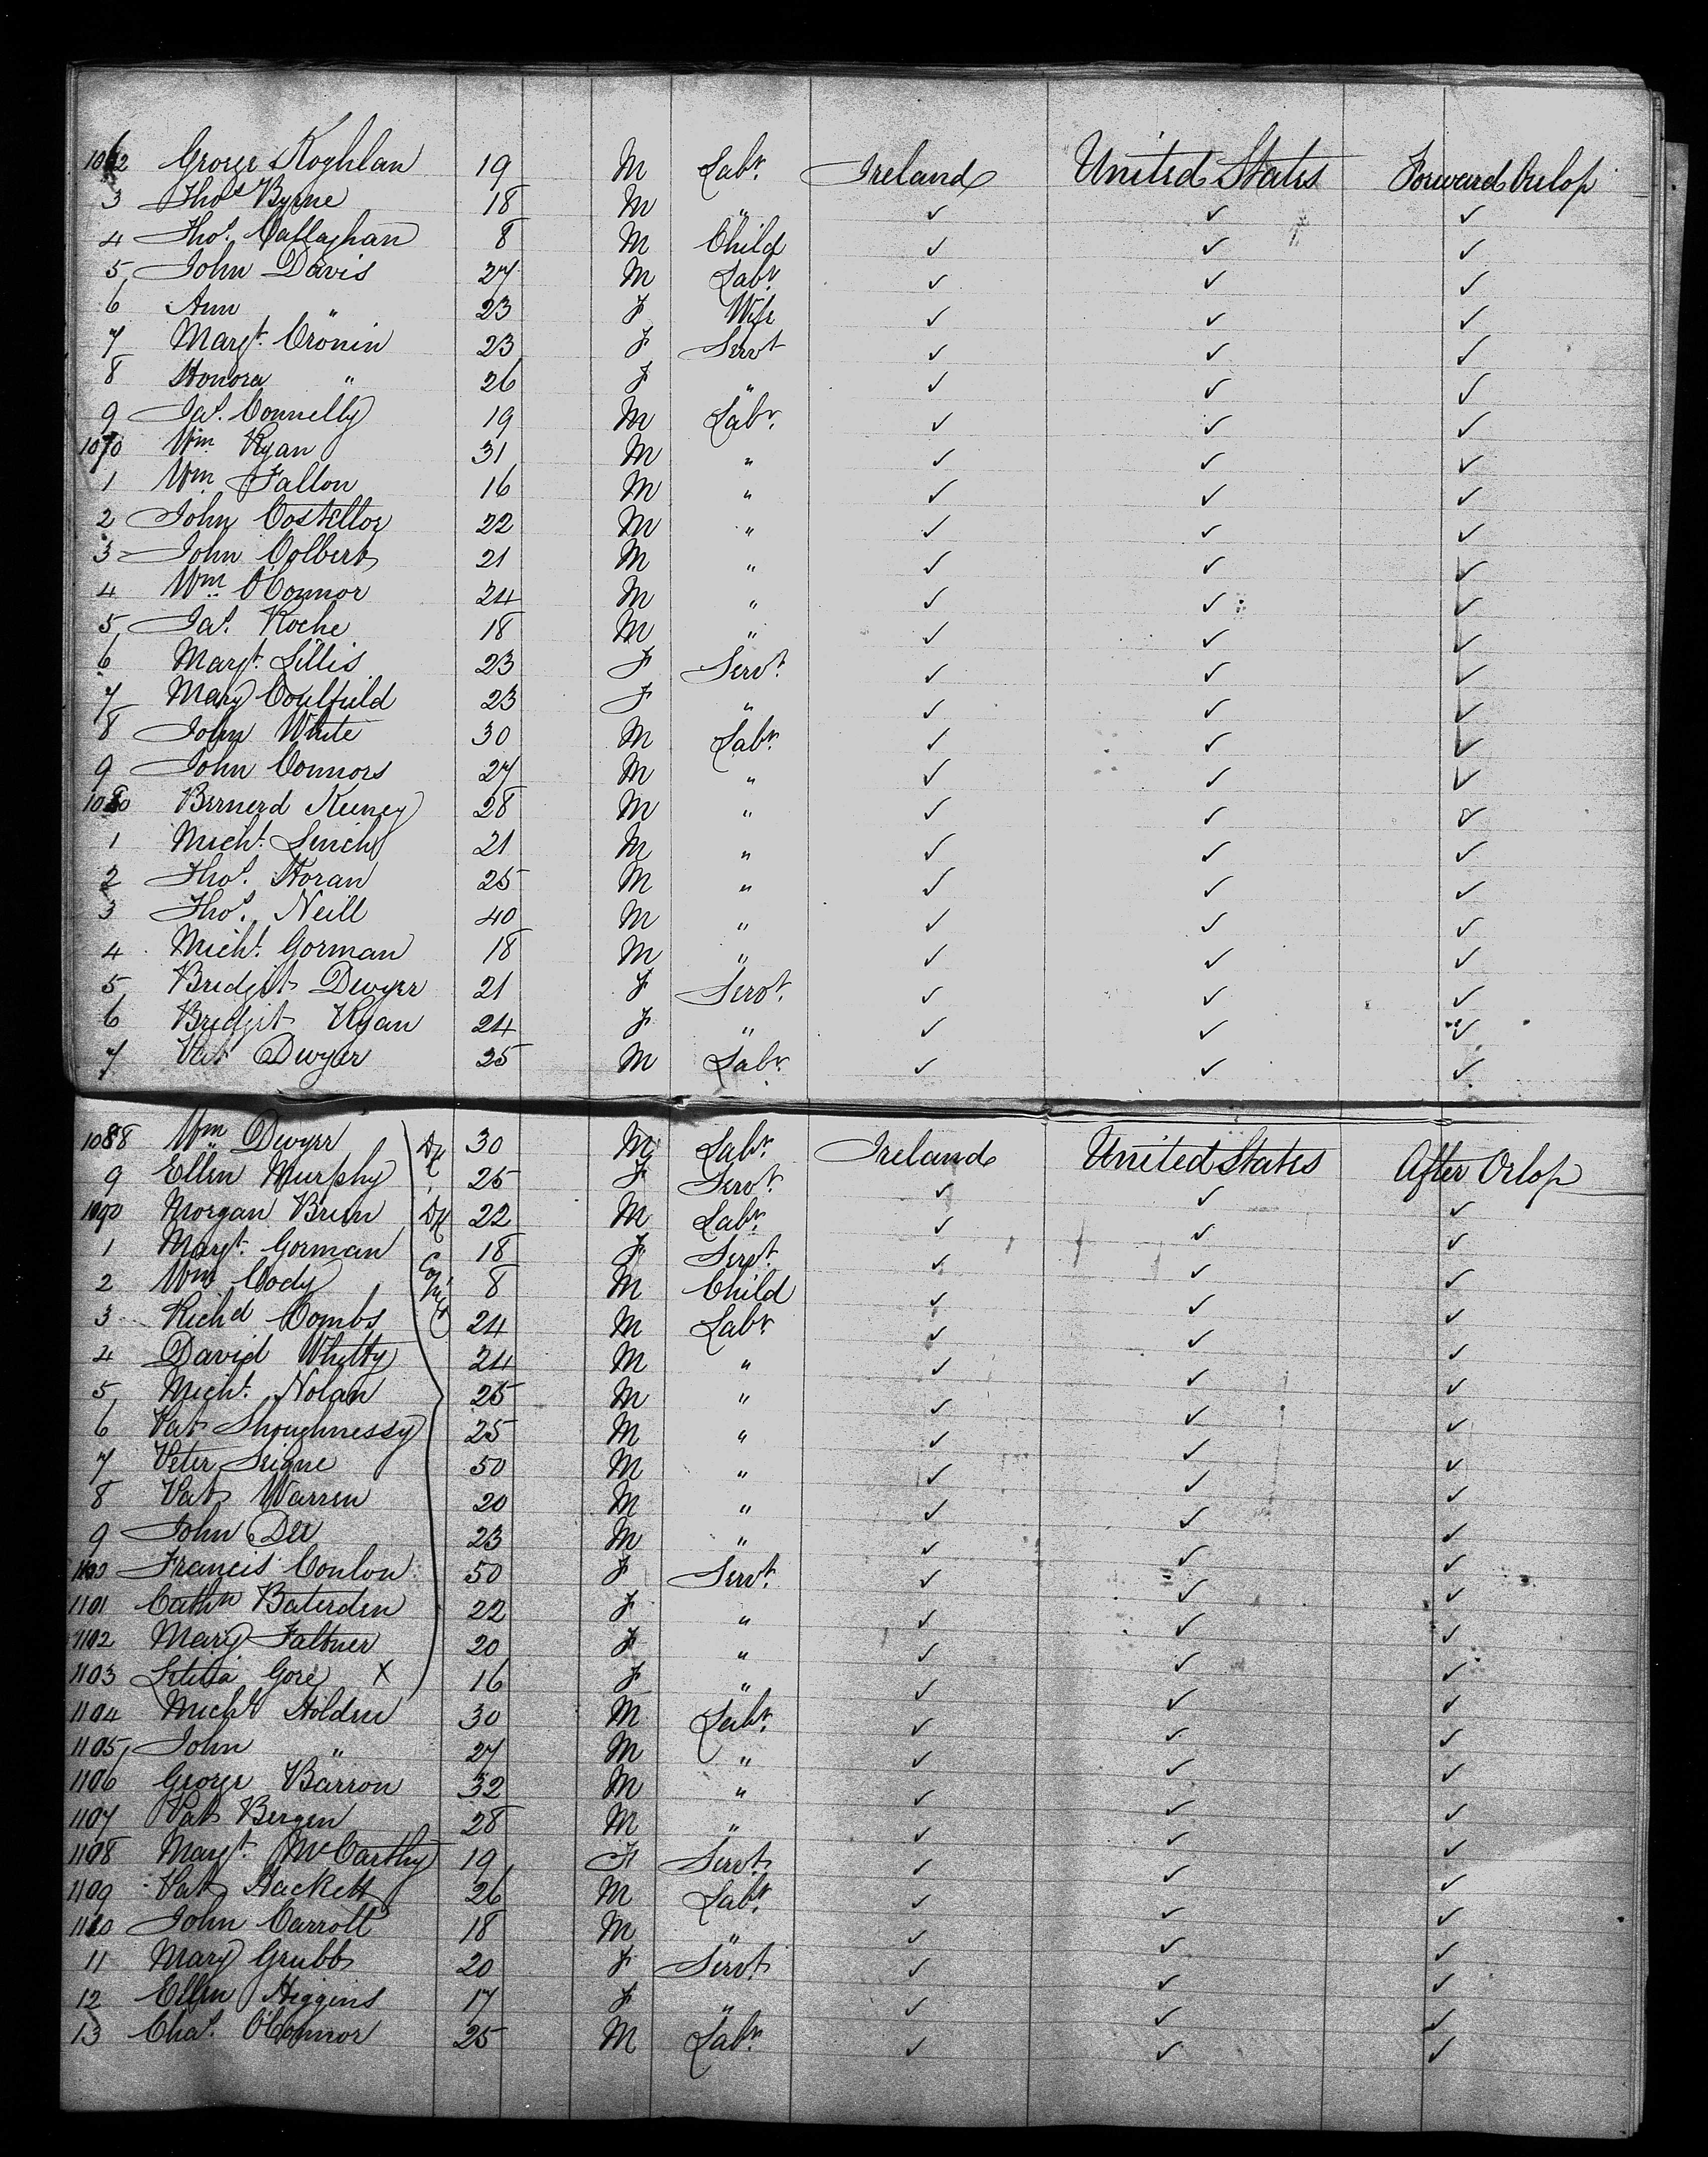 1062 George Koghlan 19 M Labr. Ireland United States Forward Orlop
3 Thos Byrne 18 M " ✓ ✓ ✓
4 Thos. Callaghan 8 M Child ✓ ✓ ✓
5 John Davis 27 M Labr. ✓ ✓ ✓
6 Ann " 23 F Wife ✓ ✓ ✓
7 Margt. Cronin 23 F Servt ✓ ✓ ✓
8 Honora " 26 F " ✓ ✓ ✓
9 Jas. Connelly 19 M Labr. ✓ ✓ ✓
1070 Wm. Ryan 31 M " ✓ ✓ ✓
1 Wm Fallon 16 M " ✓ ✓ ✓
2 John Costelloe 22 M " ✓ ✓ ✓
3 John Colbert 21 M " ✓ ✓ ✓
4 Wm. O'Connor 24 M " ✓ ✓ ✓
5 Jas. Roche 18 M " ✓ ✓ ✓
6 Margt. Lillis 23 F Servt. ✓ ✓ ✓
7 Mary Coulfield 23 F " ✓ ✓ ✓
8 John White 30 M Labr. ✓ ✓ ✓
9 John Connors 27 M " ✓ ✓ ✓
1080 Bernerd Keeney 28 M " ✓ ✓ ✓
1 Michl. Linch 21 M " ✓ ✓ ✓
2 Thos. Horan 25 M " ✓ ✓ ✓
3 Thos. Neill 40 M " ✓ ✓ ✓
4 Michl. Gorman 18 M " ✓ ✓ ✓
5 Bredgit Dwyer 21 F Servt. ✓ ✓ ✓
6 Bredgit Ryan 24 F " ✓ ✓ ✓
7 Pat Dwyer 25 M Labr. ✓ ✓ ✓
1088 Wm Dwyer 30 M Labr. Ireland United States After Orlop
9 Ellen Murphy 25 F Servt. ✓ ✓ ✓
1090 Morgan Brien 22 M Labr. ✓ ✓ ✓
1 Margt. Gorman 18 F Servt. ✓ ✓ ✓
2 Wm Cody 8 M Child ✓ ✓ ✓
3 Richd Combs 24 M Labr. ✓ ✓ ✓
4 David Whitty 24 M " ✓ ✓ ✓
5 Michl. Nolan 25 M " ✓ ✓ ✓
6 Pat Shoughnessy 25 M " ✓ ✓ ✓
7 Peter 50 M " ✓ ✓ ✓
8 Pat Warren 20 M " ✓ ✓ ✓
9 John Dee 23 M " ✓ ✓ ✓
1100 Francis Conlon 50 F Servt. ✓ ✓ ✓
1101 Cathn Baterden 22 F " ✓ ✓ ✓
1102 Mary Faltner 20 F " ✓ ✓ ✓
1103 Letitia Gore X 16 F " ✓ ✓ ✓
1104 Michl Holden 30 M Labr. ✓ ✓ ✓
1105 John " 27 M " ✓ ✓ ✓
1106 George Barron 32 M " ✓ ✓ ✓
1107 Pat Bergen 28 M " ✓ ✓ ✓
1108 Margt. McCarthy 19 F Servt. ✓ ✓ ✓
1109 Pat Hackett 26 M Labr. ✓ ✓ ✓
1110 John Carroll 18 M " ✓ ✓ ✓
11 Mary Grubb 20 F Servt. ✓ ✓ ✓
12 Ellen Higgins 17 F " ✓ ✓ ✓
13 Chas. O'Connor 25 M Labr. ✓ ✓ ✓